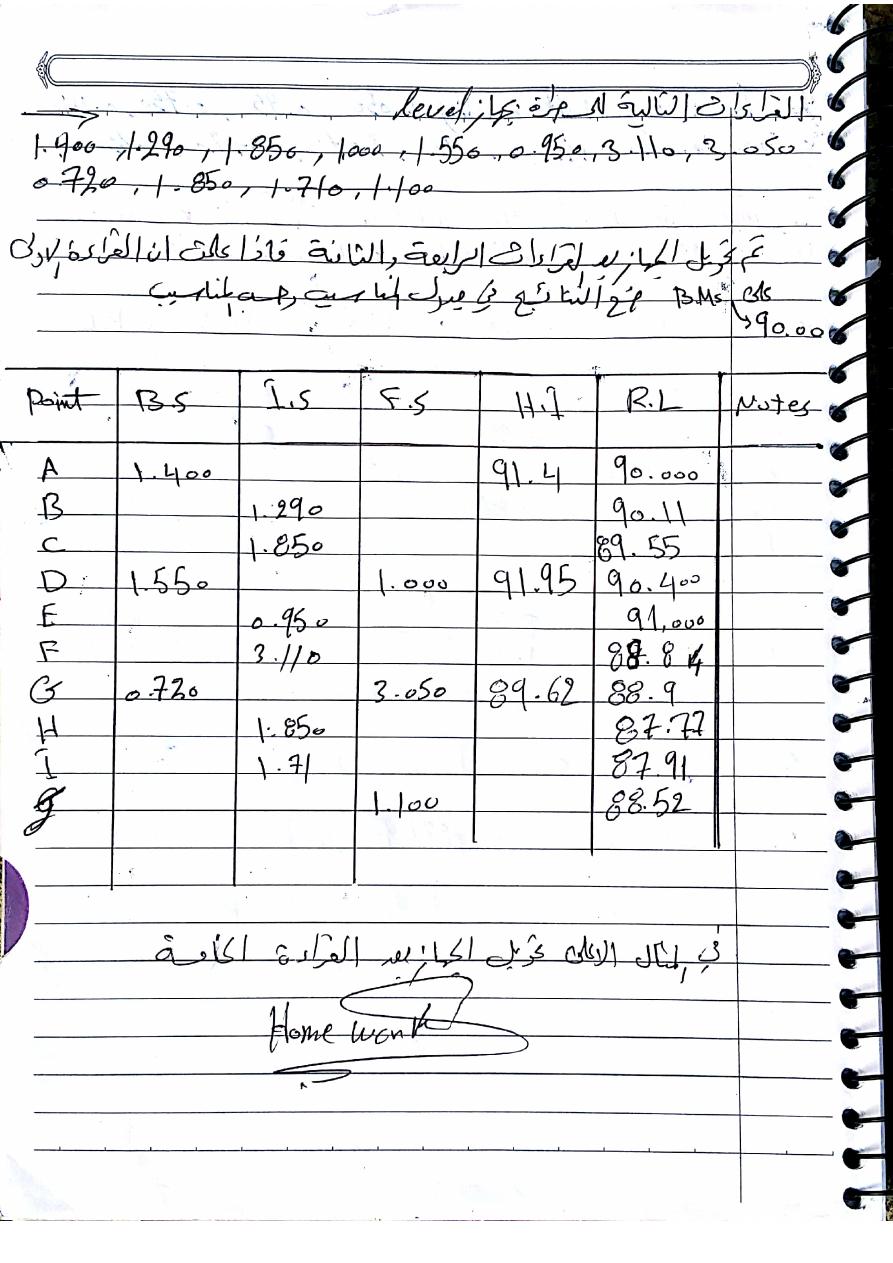 القراءات التالية للمأخوذة بجهاز level
1.400 , 1.290 , 1.850 , 1.000 , 1.550 , 0.950 , 3.110 , 3.050
0.720 , 1.850 , 1.710 , 1.100
تم تحويل الجهاز بعد القراءات الرابعة والثامنة فإذا علمت ان القراءة الاولى
على B.M ضع النتائج في جدول المناسيب وجد المناسيب
90.00
Point B.S I.S F.S H.I R.L Notes
A 1.400 91.4 90.000
B 1.290 90.11
C 1.850 89.55
D 1.550 1.000 91.95 90.400
E 0.950 91,000
F 3.110 88.84
G 0.720 3.050 89.62 88.9
H 1.850 87.77
I 1.71 87.91
J 1.100 88.52
في المثال الاعلى تحويل الجهاز بعد القراءة الخامسة
Home work